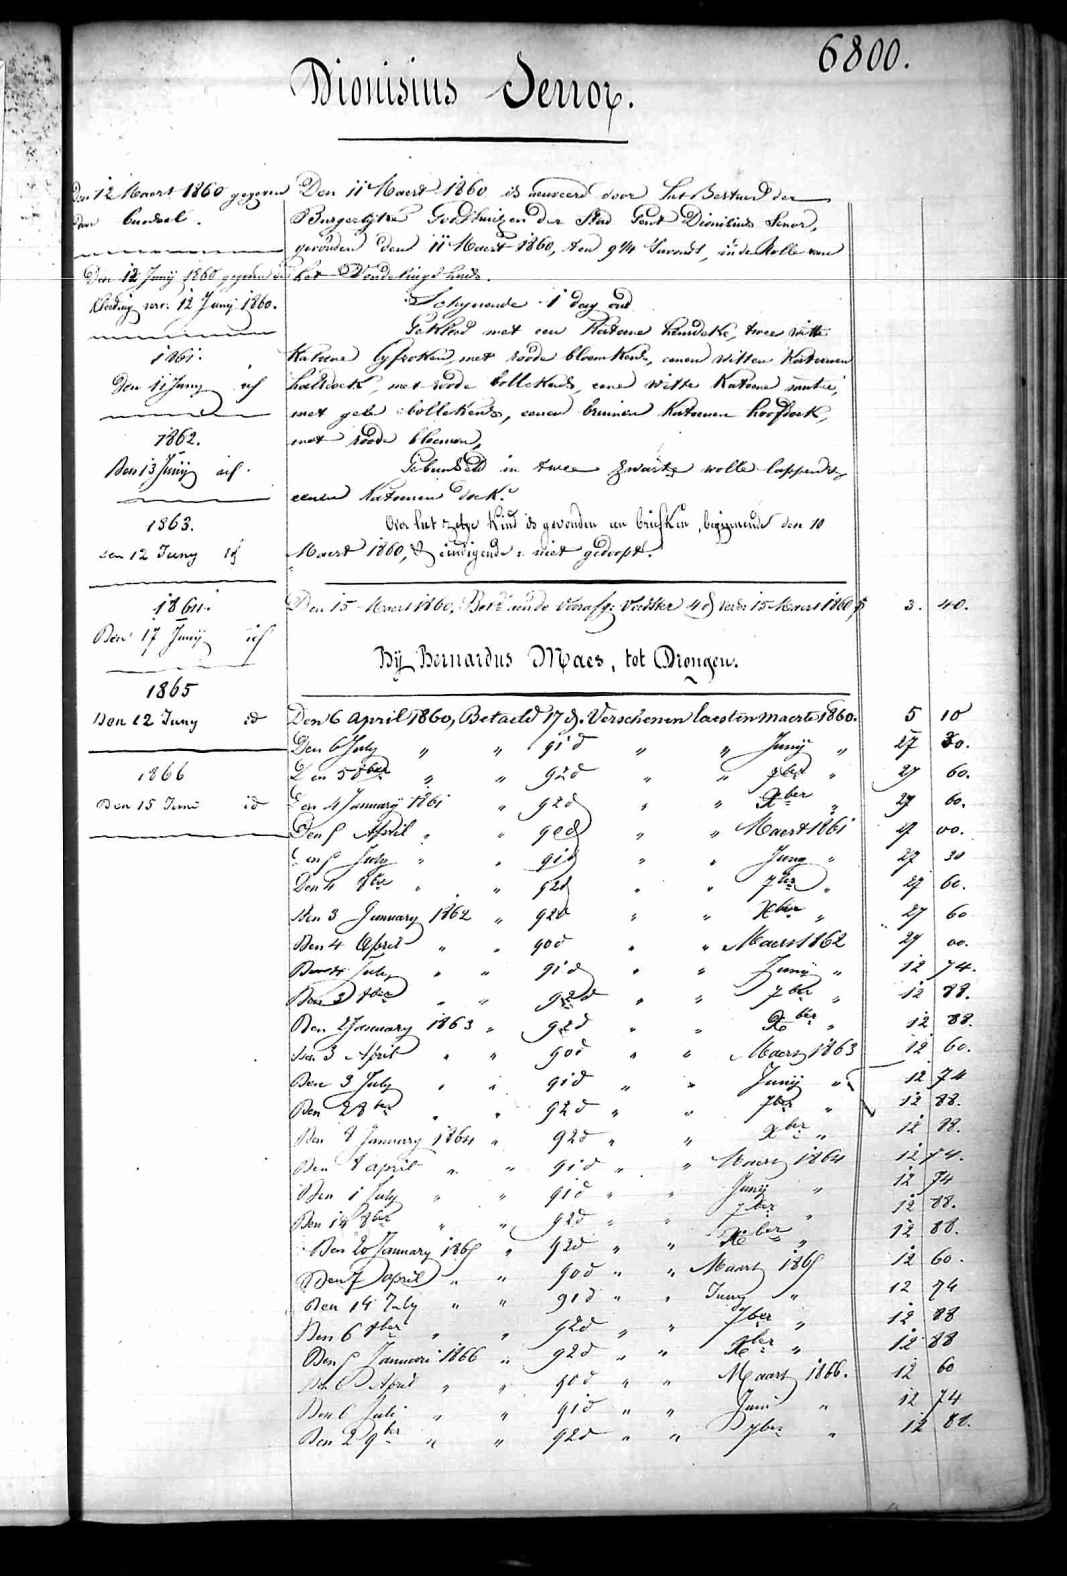 6800.
Dionisius Senox.
Den 12 Maert 1860 gegeven
een bundel.
Den 12 Junij 1860 gegeven de
kleeding verv. 12 Junij 1860.
1861.
Den 11 Juny id
1862.
Den 13 Junij id.
1863.
den 12 Juny id
1864.
Den 17 Junij id
1865
Den 12 Juny id
1866
Den 15 Juni id
Den 11 Maert 1860 is aenveerd door het Bestuer der
Burgerlyke Godshuizen der Stad Gent Dionisius Senox,
gevonden den 11 Maert 1860, ten 9 1/4 savonds, in de Rolle van
het Vondelingshuis.
Schynende 1 dag oud
Gekleed met een Katoene hemdeke, twee witte
Katoene lyfrokken, met roode bloemkens, eenen witten Katoenen
halsdoek, met roode bollekens, eene witte Katoene mutse,
met gele bollekens, eenen bruinen Katoenen hoofdoek,
met roode bloemen,
Gebundeld in twee zwarte wolle lappen &
eenen Katoenen doek.
Op het zelve Kind is gevonden een briefken, beginnende den 10
Maert 1860, & eindigende: niet gedoopt.
Den 15 Maert 1860, Bet. aende Voedster 4 d verv 15 Maert 1860 f 3. 40.
By Bernardus Maes, tot Drongen.
Den 6 April 1860, Betaeld 17 d. Verschenen laesten maerte 1860. 5 10
Den 6 July " " 91 d " " Junij " 27 30.
Den 5 8ber " " 92 d " " 7ber " 27 60.
Den 4 Januarij 1861 " 92 d " " Xber " 27 60.
Den 5 April " " 90 d " " Maert 1861 27 00.
Den 5 July " " 91 d " " Juny " 27 30
Den 4 8ber " " 92 d " " 7ber " 27 60.
Den 3 January 1862 " 92 d " " Xber " 27 60
Den 4 April " " 90 d " " Maert 1862 27 00.
Den 4 July " " 91 d " " Junij " 12 74.
Den 3 8ber " " 92 d " " 7ber " 12 88.
Den 2 January 1863 " 92 d " " Xber " 12 88.
Den 3 April " " 90 d " " Maert 1863 12 60.
Den 3 July " " 91 d " " Junij " 12 74
Den 2 8ber " " 92 d " " 7ber " 12 88.
Den 8 January 1864 " 92 d " " Xber " 12 88.
Den 8 april " " 91 d " " Maert 1864 12 74.
Den 1 July " " 91 d " " Junij " 12 74
Den 14 8ber " " 92 d " " 7ber " 12 88.
Den 20 January 1865 " 92 d " " Xber " 12 88.
Den 7 april " " 90 d " " Maart 1865 12 60.
Den 14 July " " 91 d " " Juny " 12 74
Den 6 8ber " " 92 d " " 7ber " 12 88
Den 5 Januari 1866 " 92 d " " Xber " 12 88
Den 6 April " " 90 d " " Maart 1866. 12 60
Den 6 Juli " " 91 d " " Juni " 12 74
Den 2 9ber " " 92 d " " 7ber " 12 88.